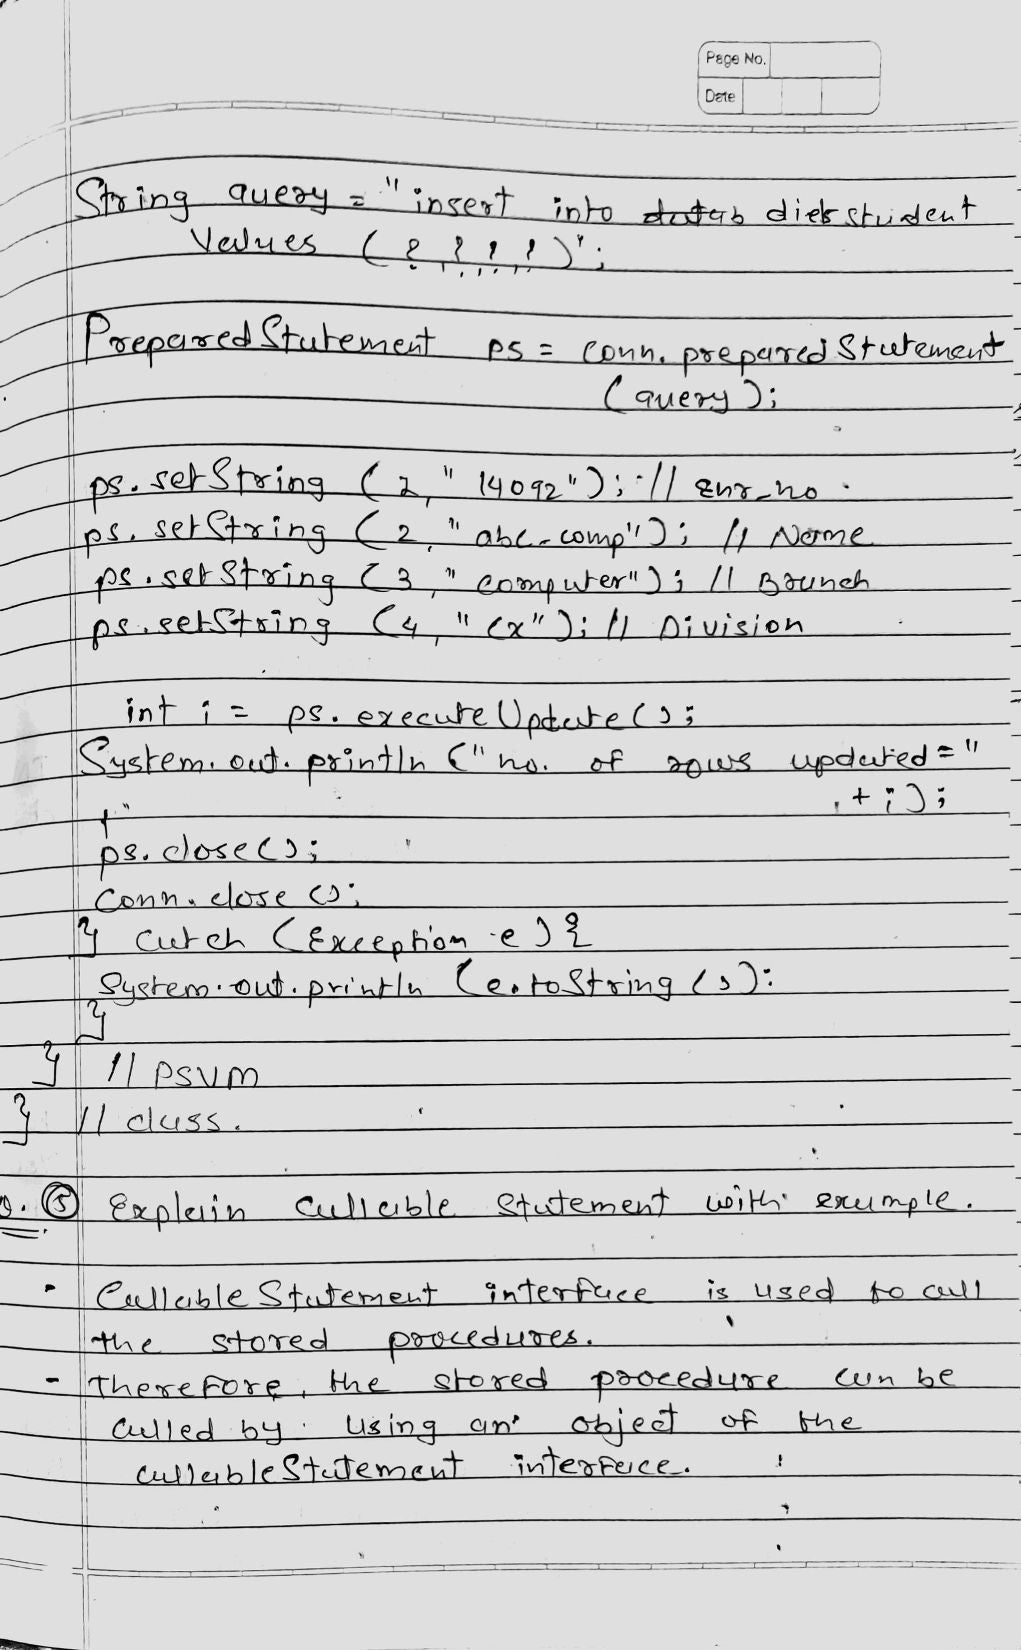 Page No.
Date
String query = "insert into diet student
Values (?, ?, ?, ?)";
PreparedStatement ps = conn.preparedStatement
(query);
ps.setString (1, "14092"); // Enr_no
ps.setString (2, "abc-comp"); // Name
ps.setString (3, "computer"); // Branch
ps.setString (4, "cx"); // Division
int i = ps.executeUpdate();
System.out.println ("no. of rows updated = "
+ i);
ps.close();
conn.close();
} catch (Exception e) {
System.out.println (e.toString());
}
} // psvm
} // class.
Q. 5 Explain Callable Statement with example.
- CallableStatement interface is used to call
the stored procedures.
- Therefore, the stored procedure can be
called by using an object of the
callableStatement interface.